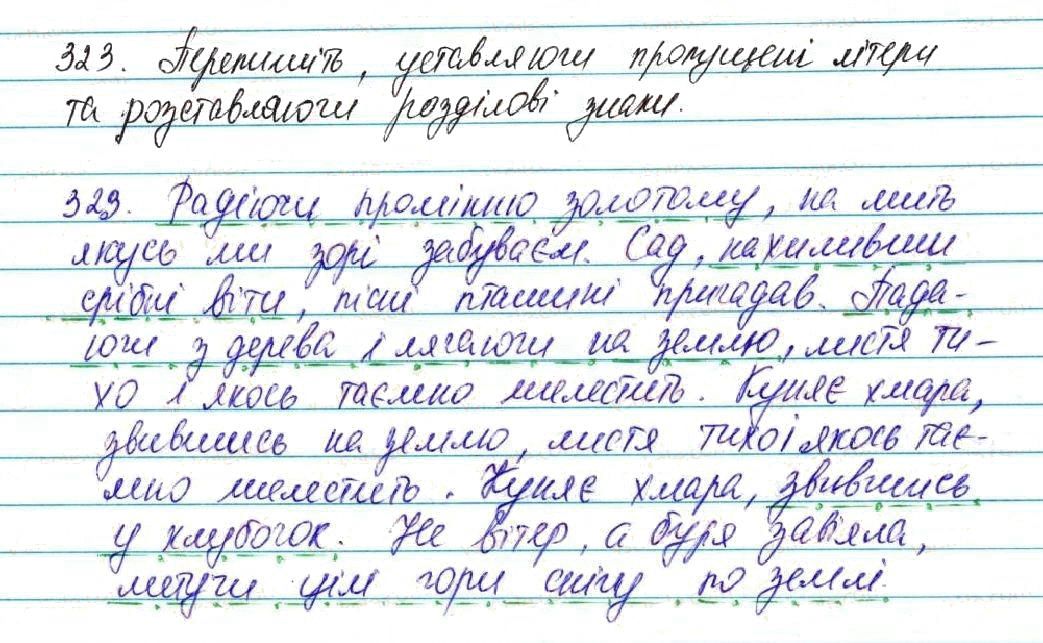 323. Перепишіть, уставляючи пропущені літери
та розставляючи розділові знаки.
323. Радіючи промінню золотому, на мить
якусь ми зорі забуваєм. Сад, нахиливши
срібні віти, пісні пташині пригадав. Пада-
ючи з дерева і лягаючи на землю, листя ти-
хо і якось таємно шелестить. Куняє хмара,
звившись на землю, листя тихо і якось тає-
мно шелестить. Куняє хмара, звившись
у клубочок. Не вітер, а буря завіяла,
метучи цілі гори снігу по землі.